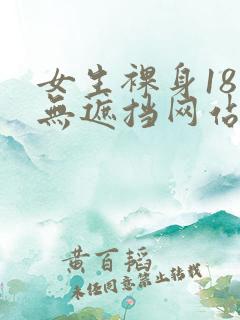 女生裸身18
無遮挡网佔
黄百韬
未任同意禁止转载